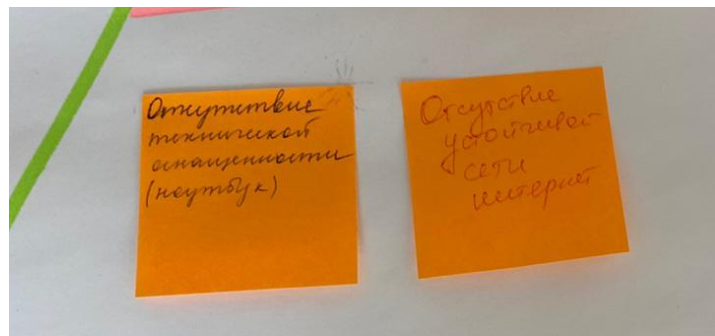 Отсутствие
технической
оснащенности
(ноутбук)
Отсутствие
устойчивой
сети
интернет